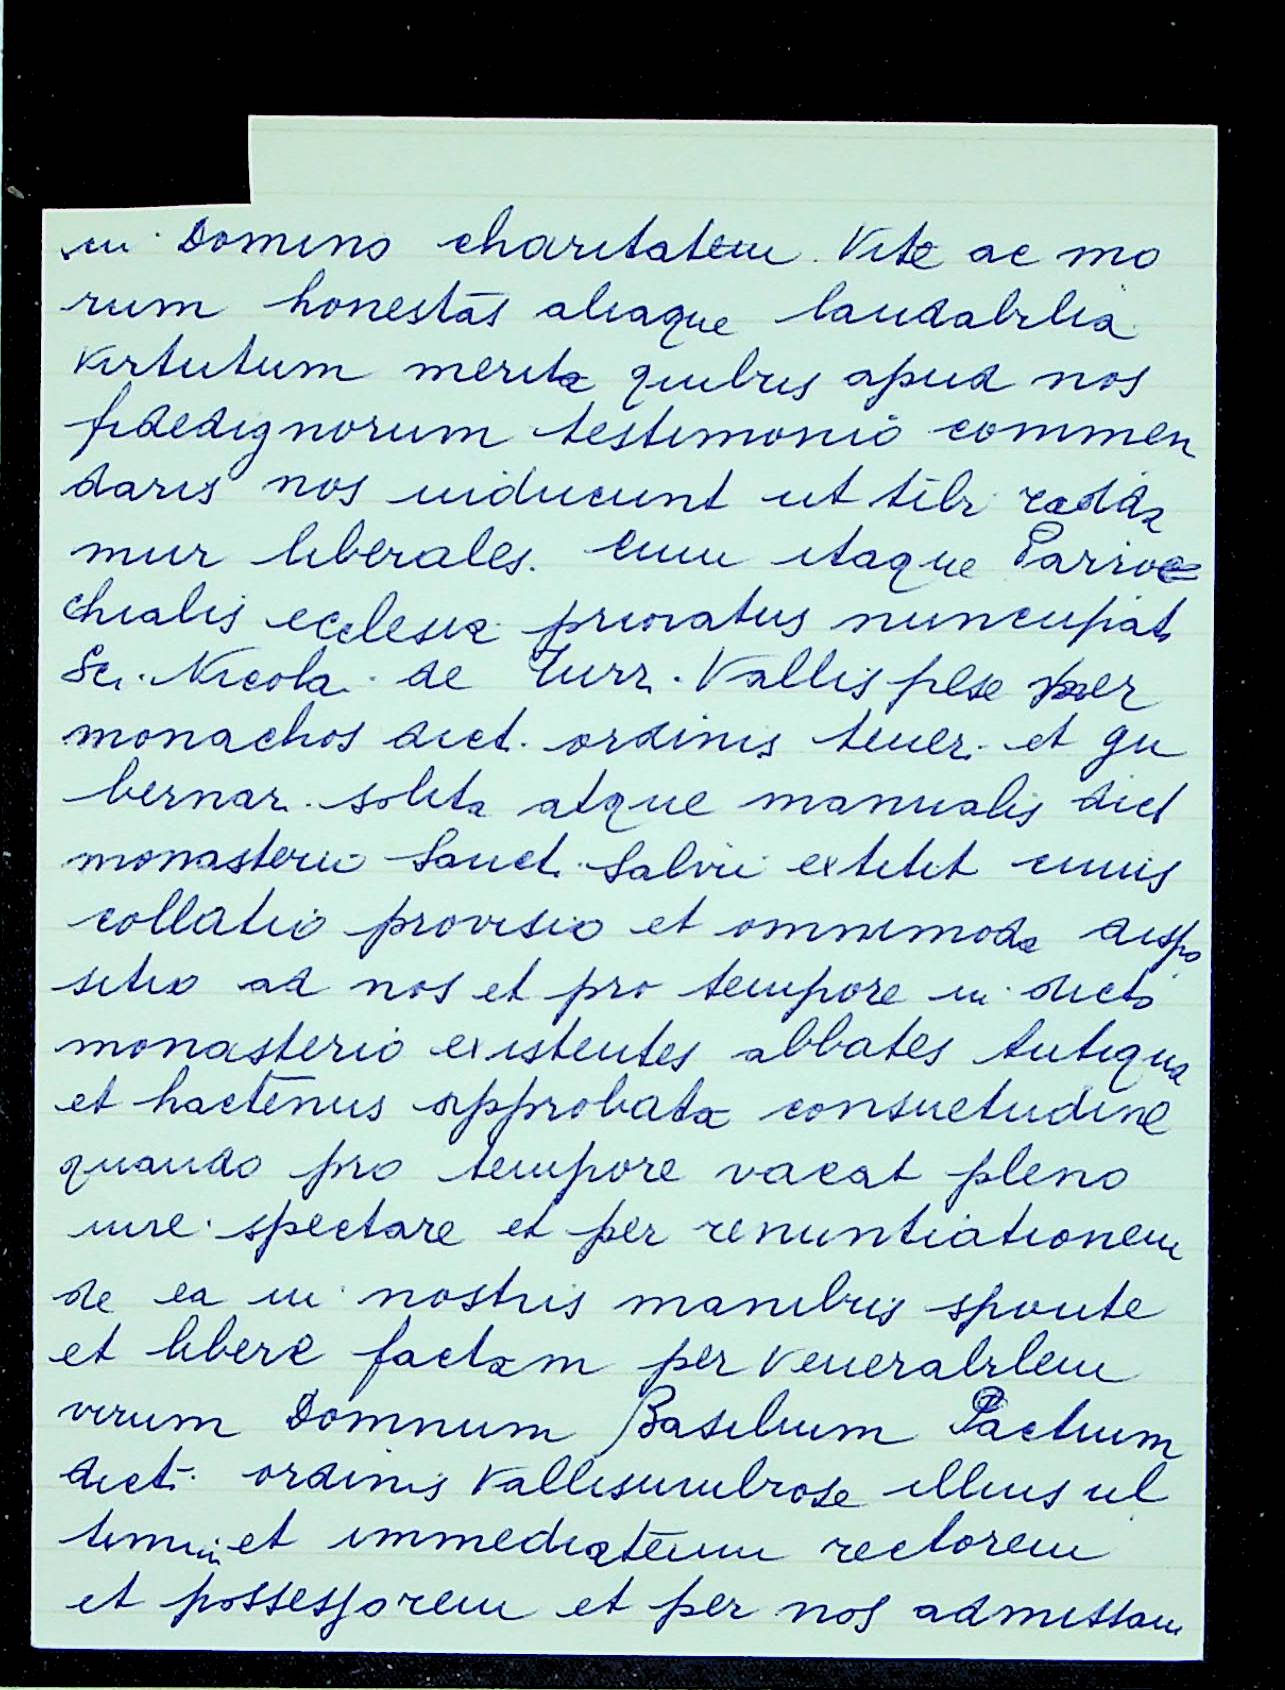 in Domino charitatem. Vite ac mo
rum honestas aliaque laudabilia
virtutum merita quibus apud nos
fidedignorum testimonio commen
daris nos inducunt ut tibi redda
mur liberales. Cum itaque Parroc=
chialis ecclesia prioratus nuncupat.
Sci. Nicola. de Turr. Vallis pese per
monachos dict. ordinis tener. et gu
bernar. solita atque manualis dict
monasterii Sanct. Salvii extitit cuius
collatio provisio et omnimoda dispo
sitio ad nos et pro tempore in dicto
monasterio existentes abbates antiqua
et hactenus approbata consuetudine
quando pro tempore vacat pleno
iure spectare et per renuntiationem
de ea in nostris manibus sponte
et libere factam per venerabilem
virum Domnum Basilium Pactium
dicti ordinis Vallisumbrose illius ul
timum et immediatum rectorem
et possessorem et per nos admissam